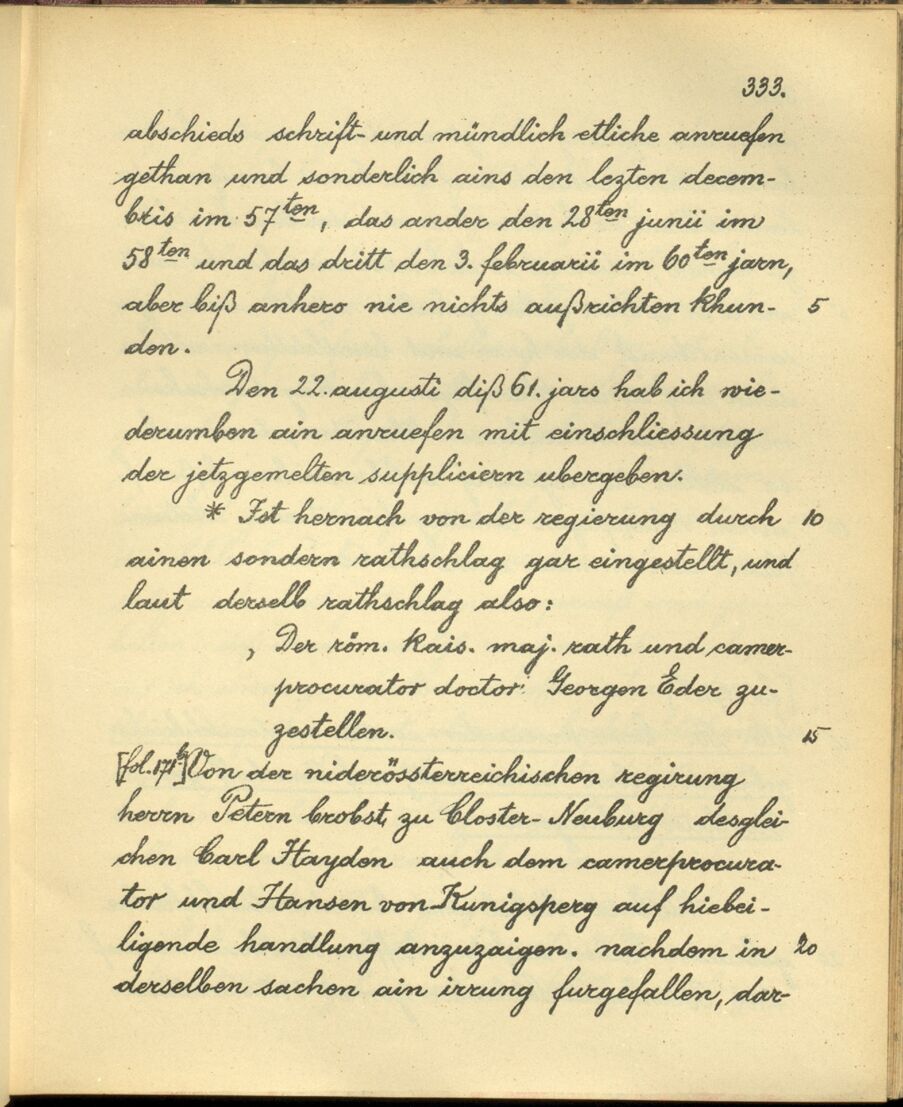 333.
abschieds schrift- und mündlich etliche anruefen
gethan und sonderlich ains den lezten decem-
bris im 57ten, das ander den 28ten junii im
58ten und das dritt den 3. februarii im 60ten jarn,
aber biß anhero nie nichts außrichten khun- 5
den.
Den 22. augusti diß 61. jars hab ich wie-
derumben ain anruefen mit einschliessung
der jetzgemelten suppliciern ubergeben.
* Ist hernach von der regierung durch 10
ainen sondern rathschlag gar eingestellt, und
laut derselb rathschlag also:
, Der röm. kais. maj. rath und camer-
procurator doctor Georgen Eder zu-
zestellen. 15
[fol. 171b] Von der niderössterreichischen regirung
herrn Petern brobst zu Closter-Neuburg desglei-
chen Carl Hayden auch dem camerprocura-
tor und Hansen von Kunigsperg auf hiebei-
ligende handlung anzuzaigen. nachdem in 20
derselben sachen ain irrung furgefallen, dar-